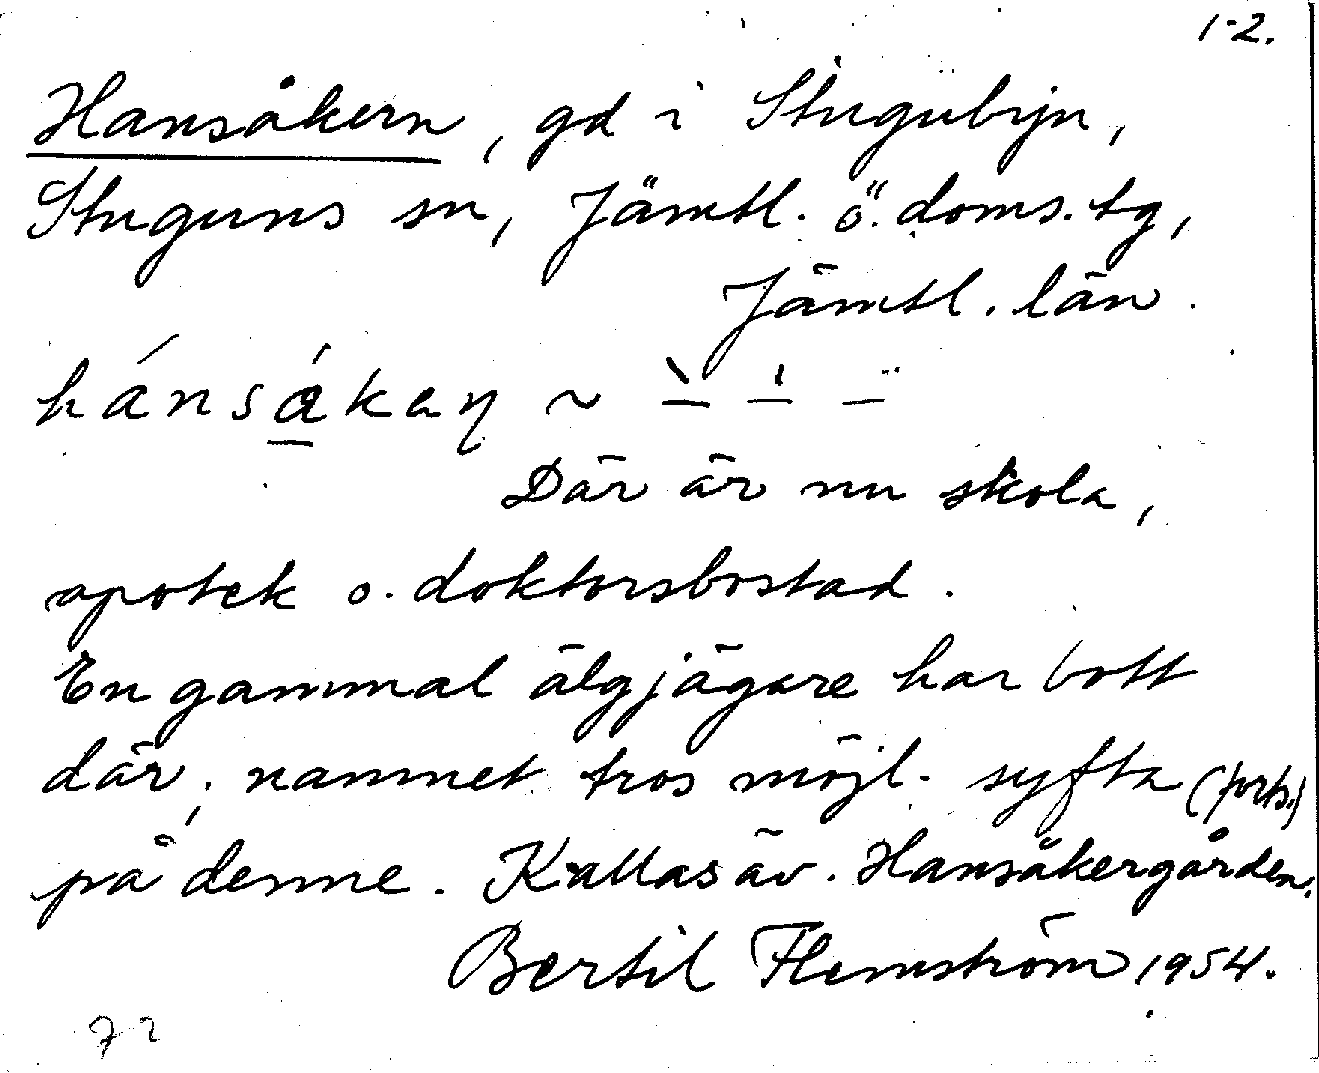 1-2.
Hansåkern, gd i Stugubyn,
Stuguns sn, Jämtl. ö. doms. tg,
Jämtl. län.
hánsá̱kaŋ ~
Där är nu skola,
apotek o. doktorsbostad.
En gammal älgjägare har bott
där; namnet tros möjl. syfta (forts.)
på denne. Kallas äv. Hansåkergården.
Bertil Flemström 1954.
72